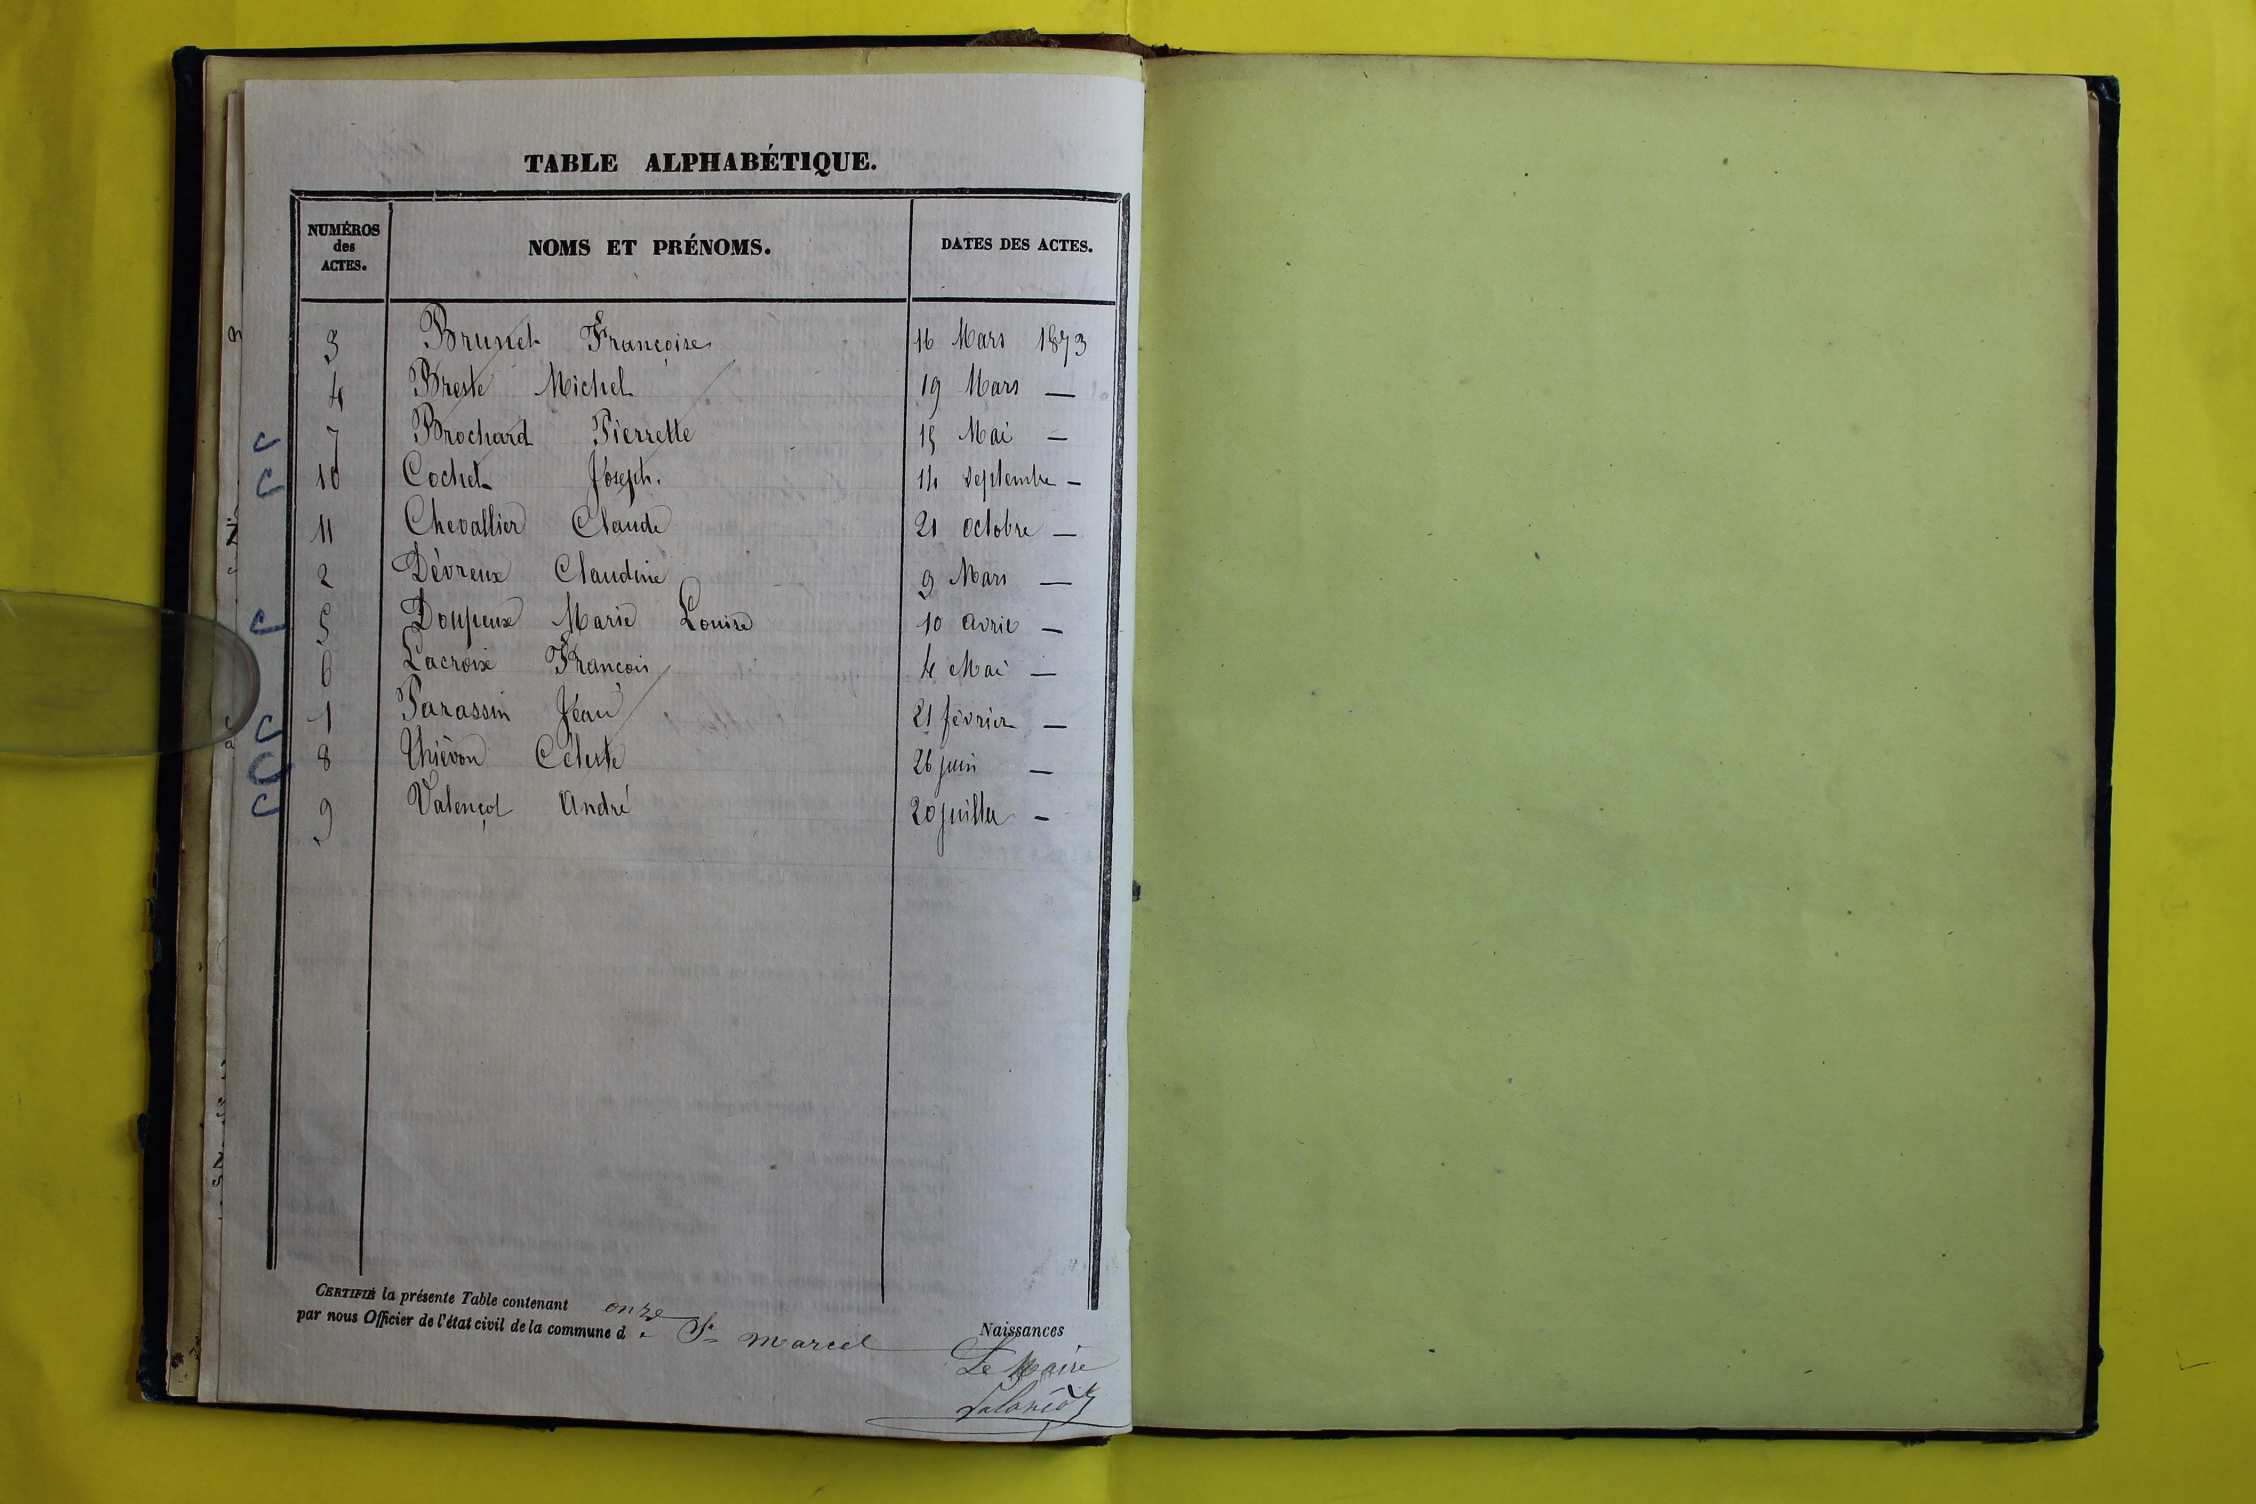 TABLE ALPHABÉTIQUE.
NUMÉROS des ACTES. NOMS ET PRÉNOMS. DATES DES ACTES.
3 Brunet Françoise 16 Mars 1873
4 Breste Michel 19 Mars —
7 Brochard Pierrette 15 Mai —
10 Cochet Joseph. 14 septembre —
11 Chevallier Claude 21 octobre —
2 Dévreux Claudine 9 Mars —
5 Doupeux Marie Louise 10 avril —
6 Lacroix François 4 Mai —
1 Parassin Jean 21 février —
8 Thiévon Céleste 26 juin —
9 Valençot André 20 juillet —
CERTIFIÉ la présente Table contenant onze Naissances
par nous Officier de l'état civil de la commune d e St Marcel
Le Maire